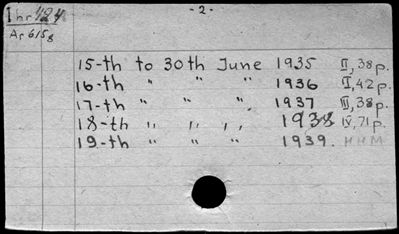 - 2 -
Ar 615g
15-th to 30th June 1935 II, 38 p.
16-th " " " 1936 I, 42 p.
17-th " " " 1937 III, 38 p.
18-th " " " 1938 IV, 71 p.
19-th " " " 1939.